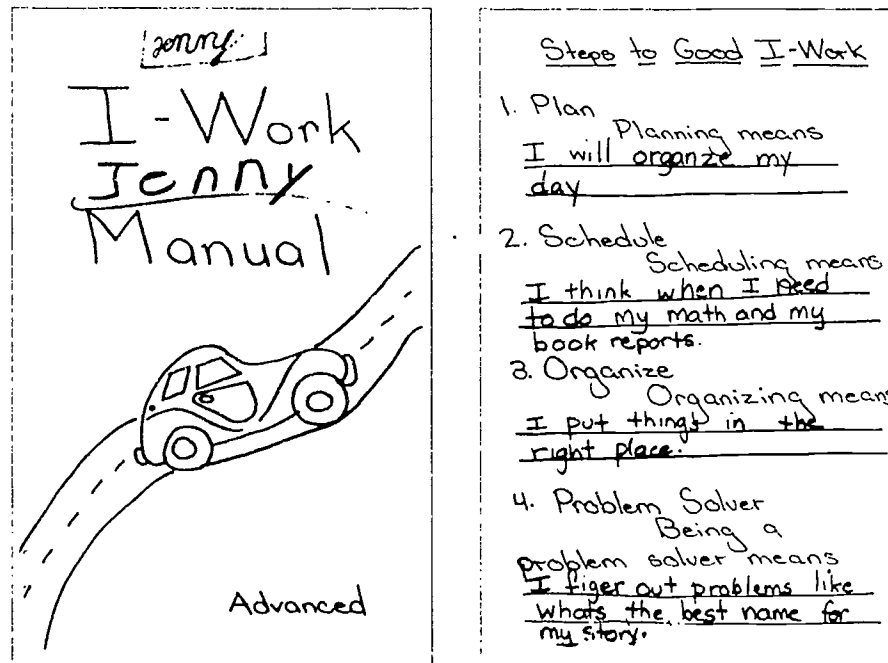 Jenny
I-Work
Jenny
Manual
Advanced
Steps to Good I-Work
1. Plan
Planning means
I will organze my
day
2. Schedule
Scheduling means
I think when I need
to do my math and my
book reports.
3. Organize
Organizing means
I put things in the
right place.
4. Problem Solver
Being a
problem solver means
I figer out problems like
whats the best name for
my story.